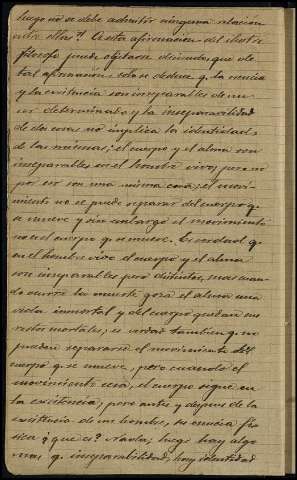 luego no se debe admitir ninguna relacion
entre ellas?! A esta afirmacion del ilustre
filosofo puede objetarse diciendo, que de
tal afirmacion solo se deduce q. la esencia
y la existencia son inseparables de un
ser determinado y la inseparabilidad
de dos cosas no implica la identidad
de las mismas; el cuerpo y el alma son
inseparables en el hombre vivo, pero no
por eso son una misma cosa; el movi-
miento no se puede separar del cuerpo q.
se mueve y sin embargo el movimiento
no es el cuerpo que se mueve. Es verdad q.
en el hombre vivo el cuerpo y el alma
son inseparables pero distintos, mas cuan-
do ocurre la muerte goza el alma una
vida inmortal y del cuerpo quedan sus
restos mortales; es verdad tambien q. no
pueden separarse el movimiento del
cuerpo q. se mueve, pero cuando el
movimiento cesa, el cuerpo sigue en
la existencia; pero antes y despues de la
existencia de un hombre, su esencia fi-
sica ¿que es? Nada; luego hay algo
mas q. inseparabilidad, hay identidad